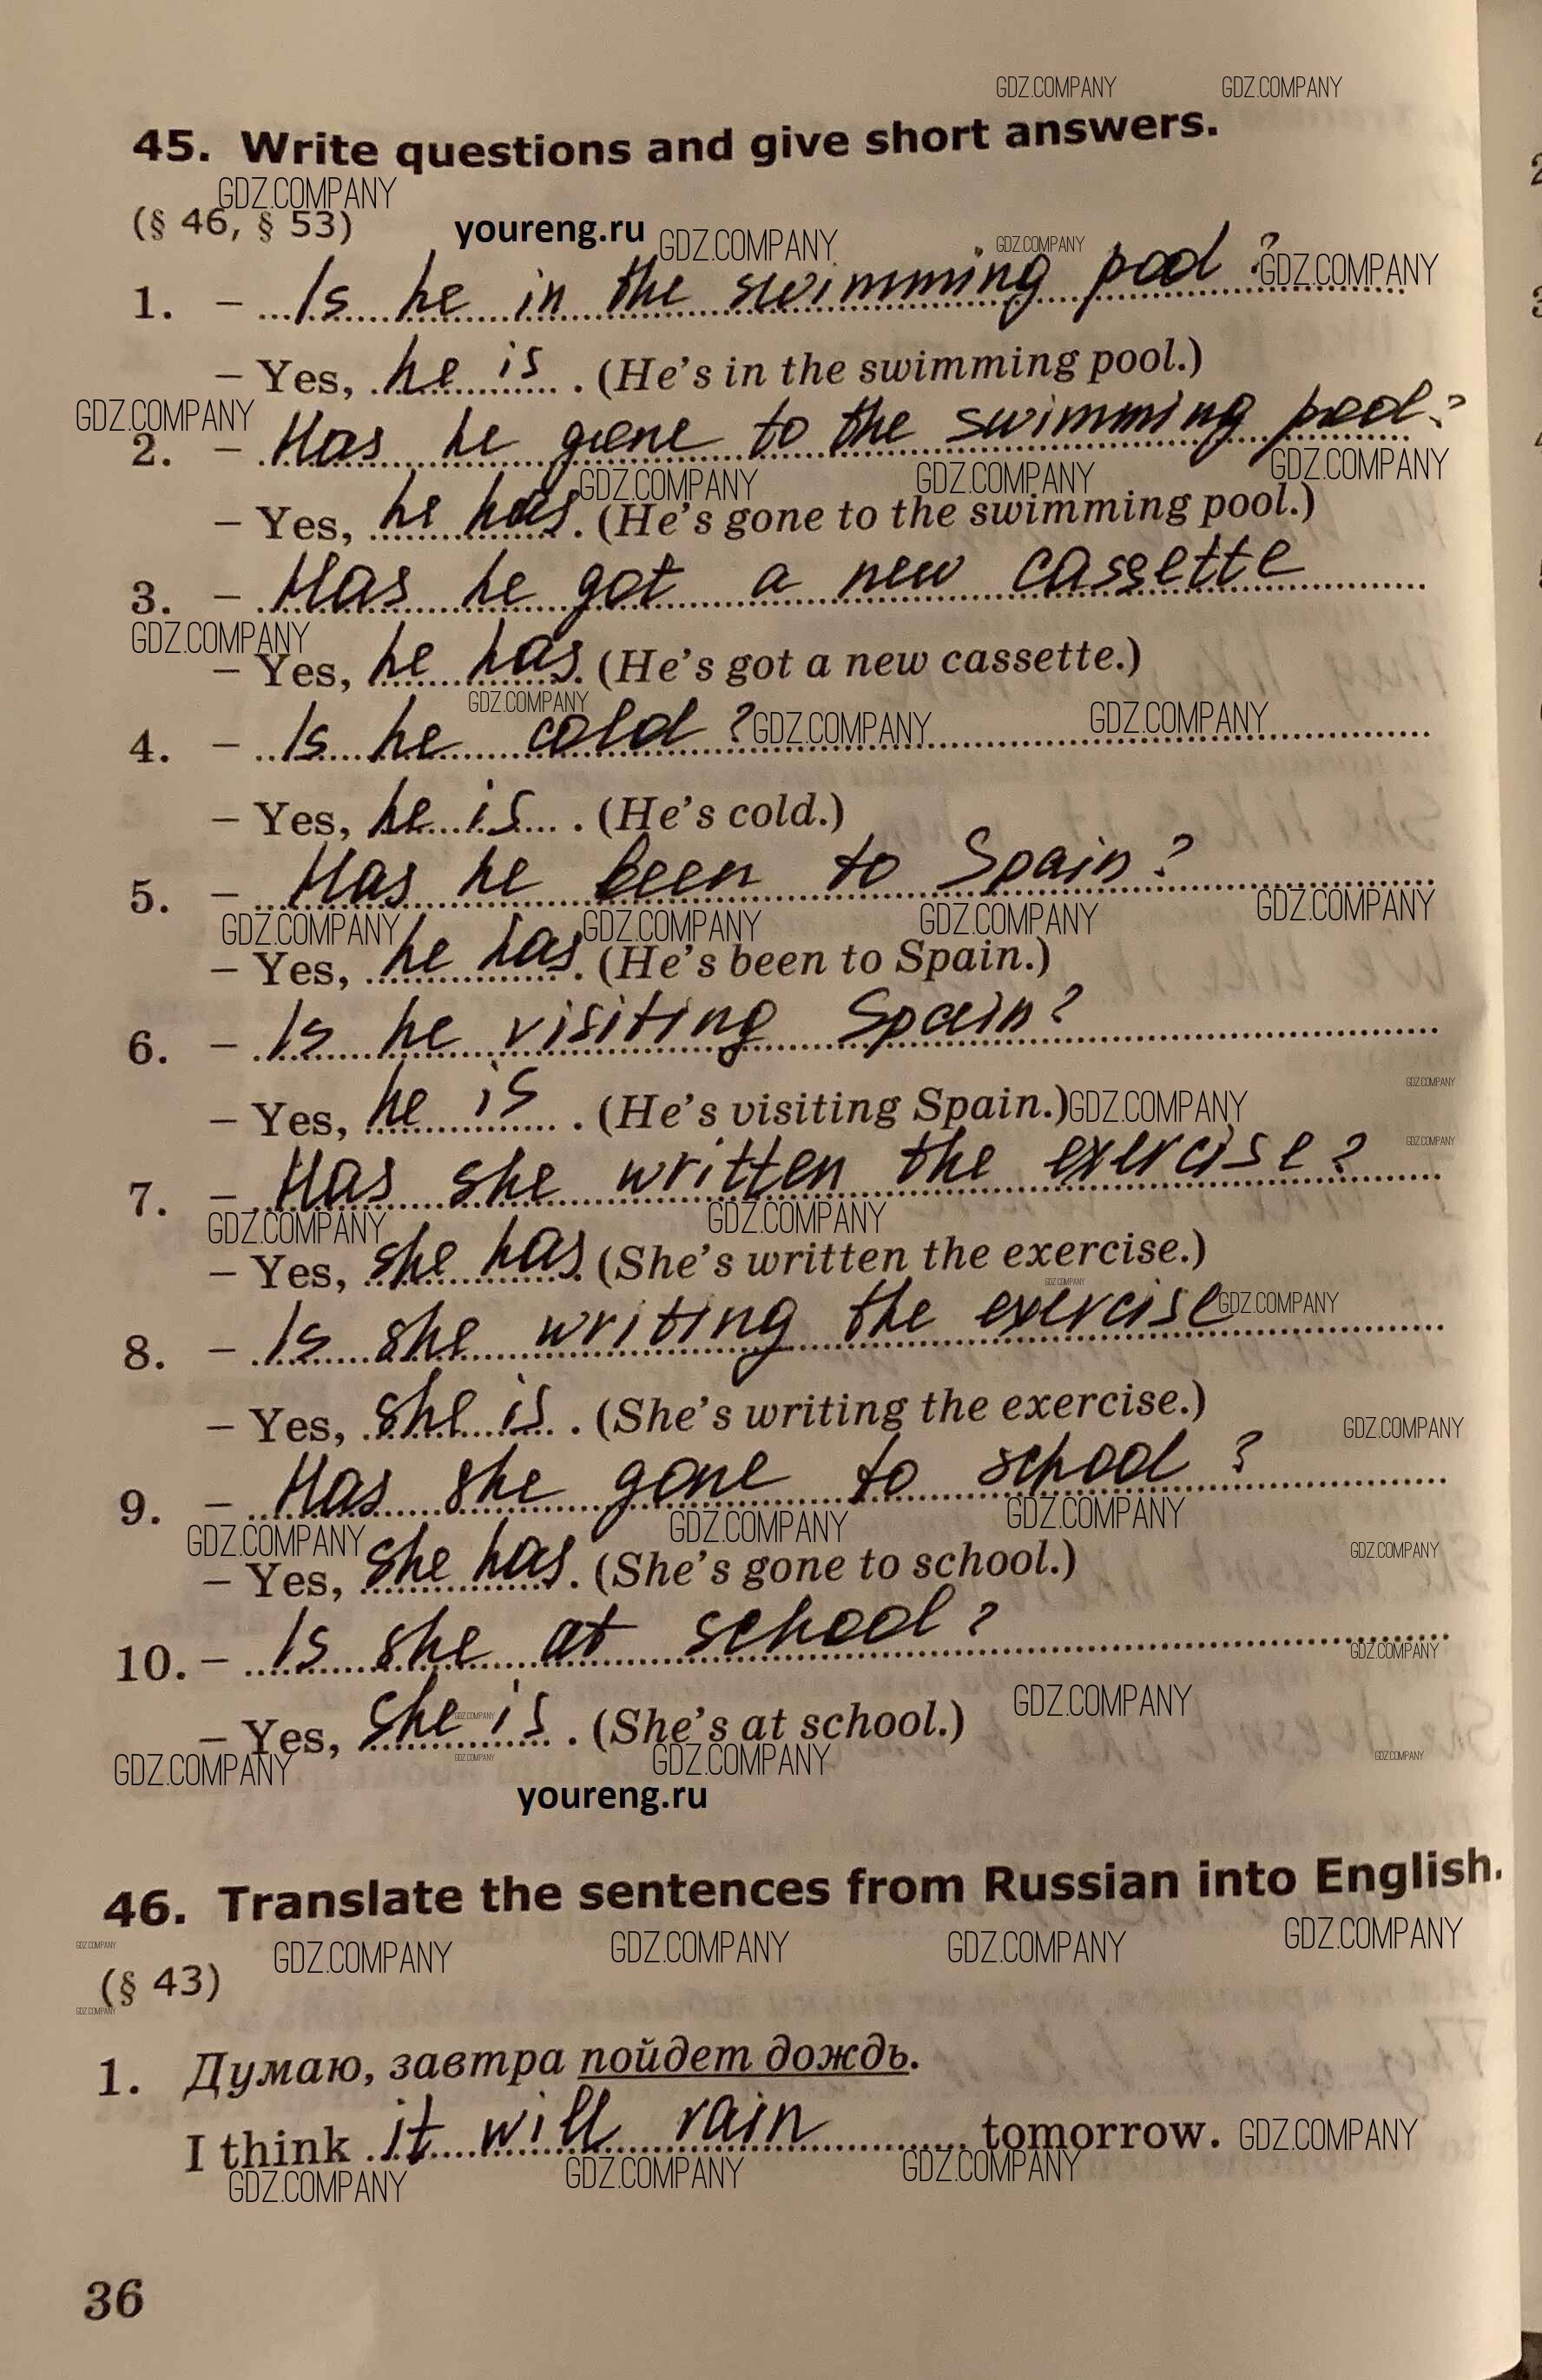 GDZ.COMPANY GDZ.COMPANY
45. Write questions and give short answers.
GDZ.COMPANY
(§ 46, § 53) youreng.ru GDZ.COMPANY GDZ.COMPANY
1. – Is he in the swimming pool? GDZ.COMPANY
– Yes, he is. (He's in the swimming pool.)
GDZ.COMPANY
2. – Has he gone to the swimming pool?
GDZ.COMPANY GDZ.COMPANY GDZ.COMPANY
– Yes, he has. (He's gone to the swimming pool.)
3. – Has he got a new cassette
GDZ.COMPANY
– Yes, he has. (He's got a new cassette.)
GDZ.COMPANY
4. – Is he cold? GDZ.COMPANY GDZ.COMPANY
– Yes, he is. (He's cold.)
5. – Has he been to Spain?
GDZ.COMPANY GDZ.COMPANY GDZ.COMPANY GDZ.COMPANY
– Yes, he has. (He's been to Spain.)
6. – Is he visiting Spain?
GDZ.COMPANY
– Yes, he is. (He's visiting Spain.) GDZ.COMPANY
GDZ.COMPANY
7. – Has she written the exercise?
GDZ.COMPANY GDZ.COMPANY
– Yes, she has. (She's written the exercise.)
GDZ.COMPANY
8. – Is she writing the exercise GDZ.COMPANY
– Yes, she is. (She's writing the exercise.)
GDZ.COMPANY
9. – Has she gone to school?
GDZ.COMPANY GDZ.COMPANY GDZ.COMPANY
– Yes, she has. (She's gone to school.) GDZ.COMPANY
10. – Is she at school?
GDZ.COMPANY
– Yes, she is. (She's at school.) GDZ.COMPANY
GDZ.COMPANY
GDZ.COMPANY GDZ.COMPANY GDZ.COMPANY GDZ.COMPANY
youreng.ru
46. Translate the sentences from Russian into English.
GDZ.COMPANY GDZ.COMPANY GDZ.COMPANY GDZ.COMPANY GDZ.COMPANY
(§ 43)
GDZ.COMPANY
1. Думаю, завтра пойдет дождь.
I think it will rain tomorrow. GDZ.COMPANY
GDZ.COMPANY GDZ.COMPANY GDZ.COMPANY
36